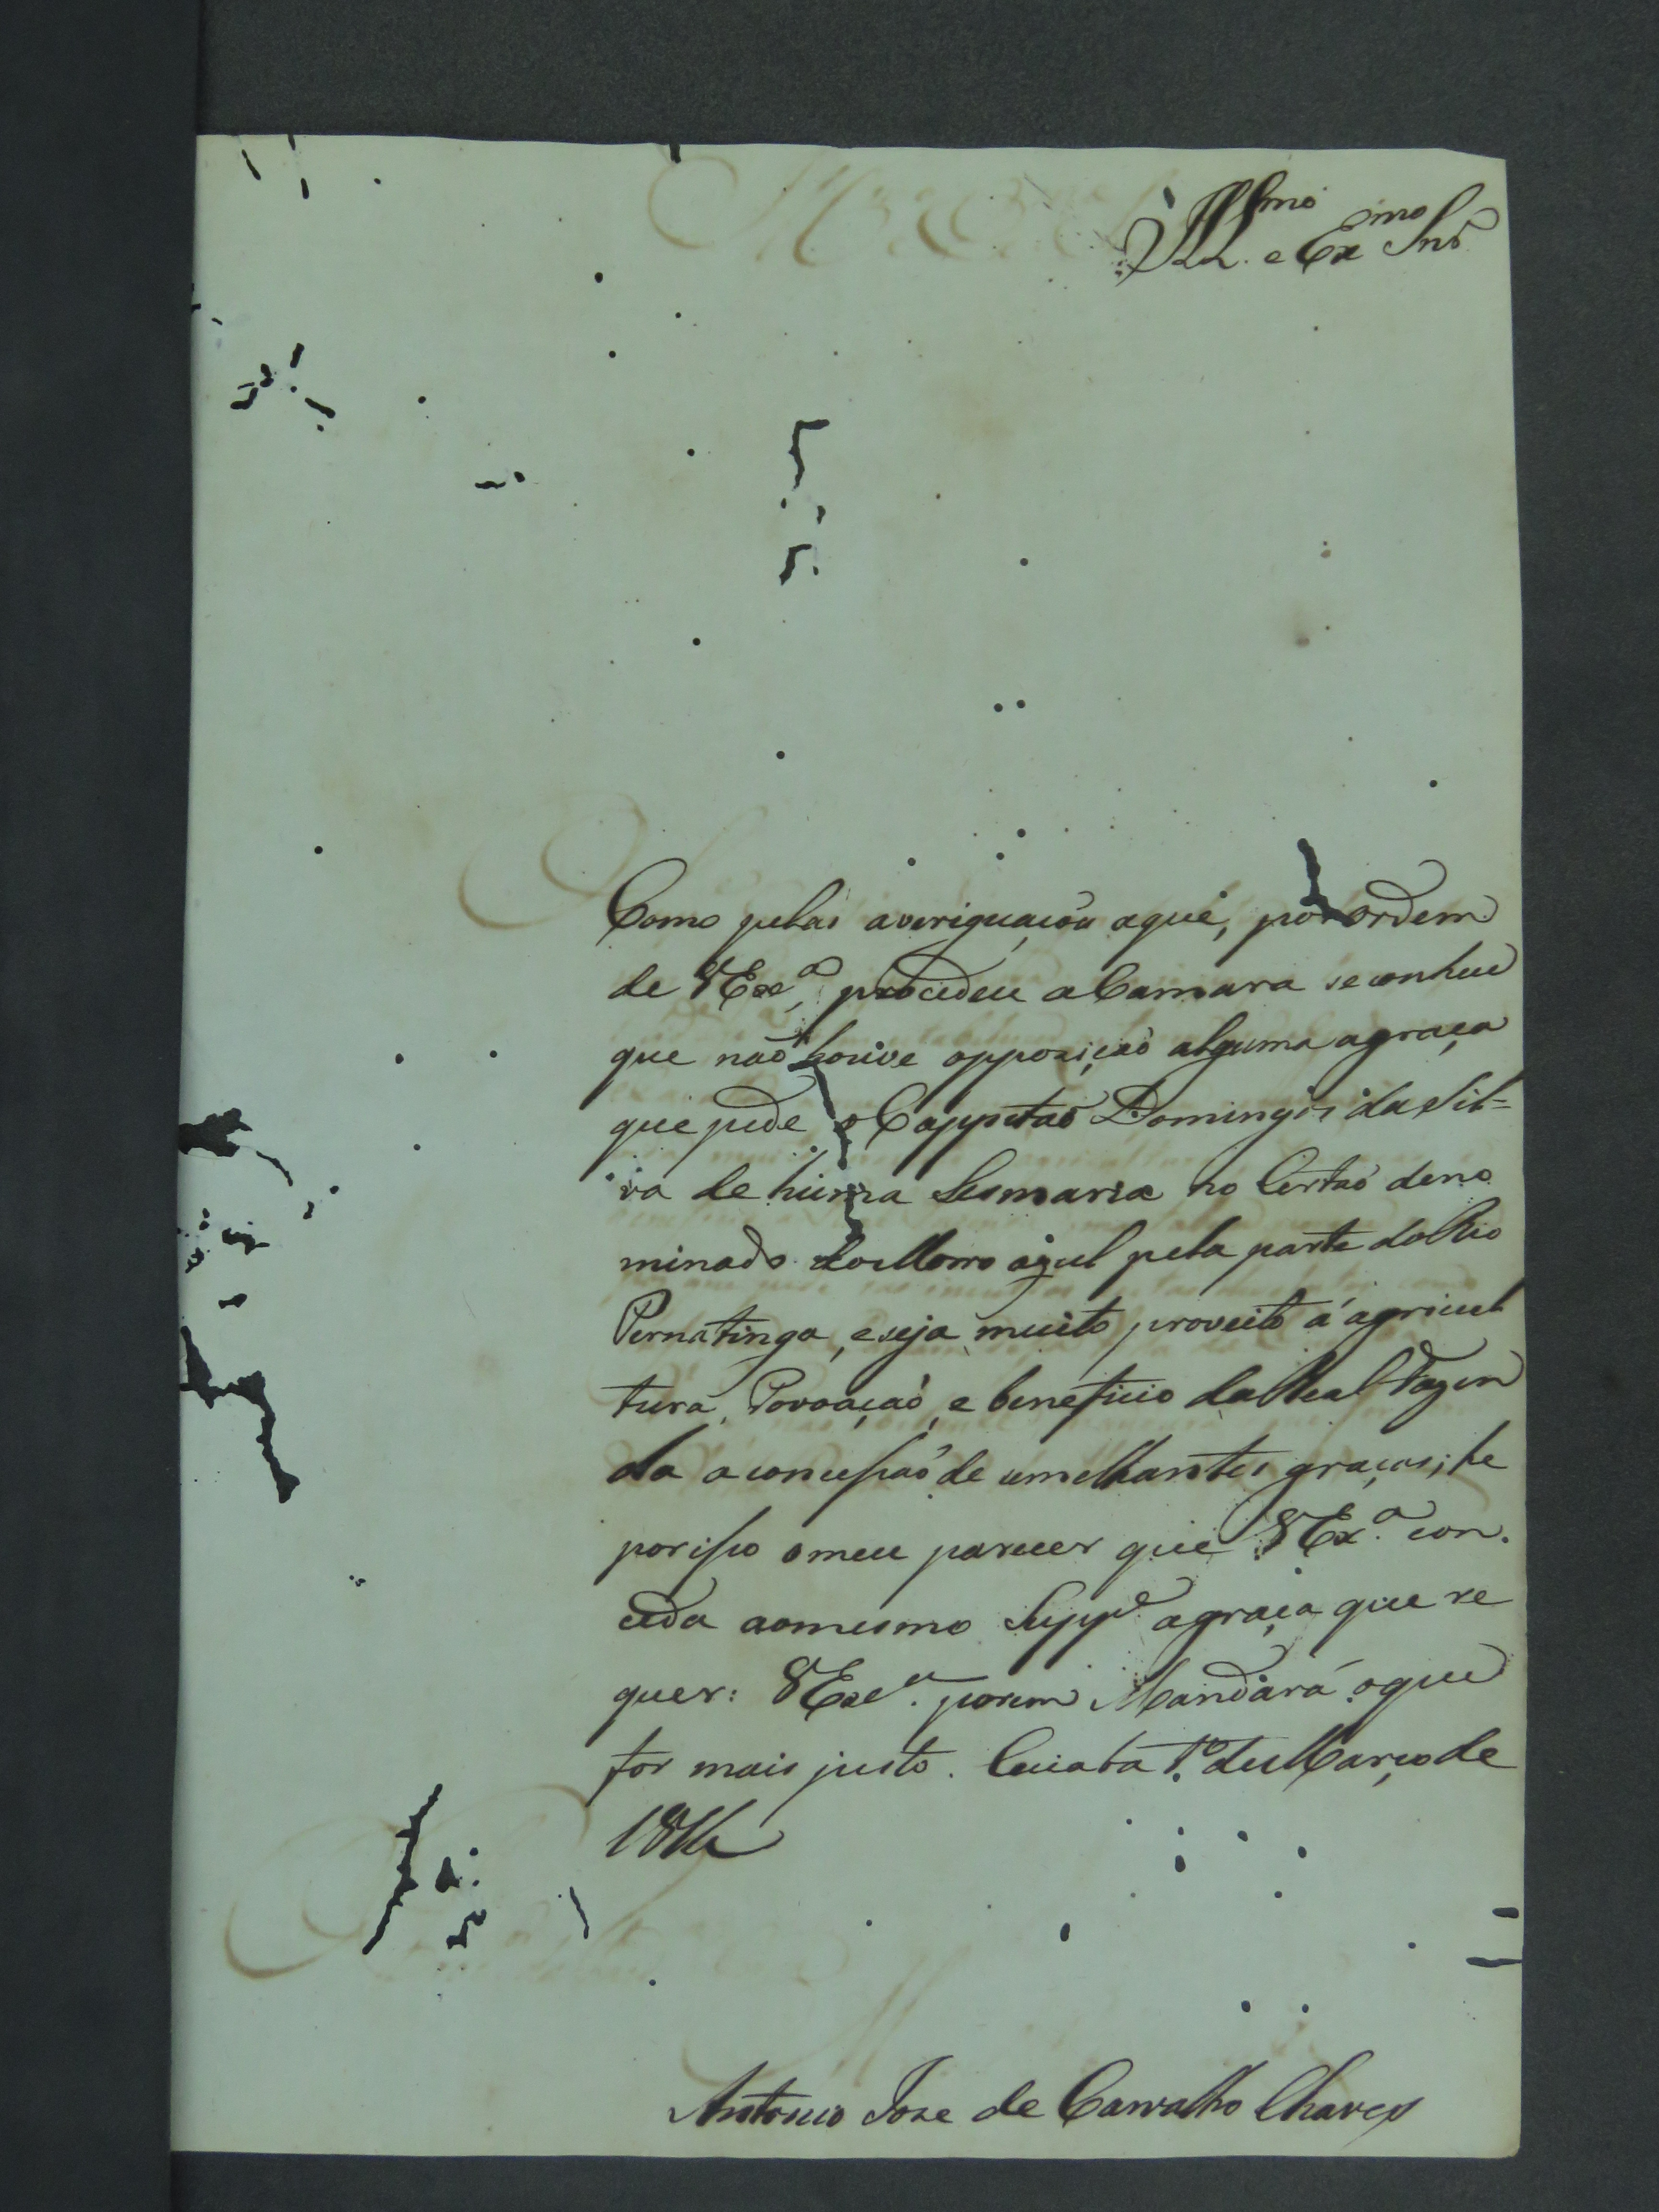 Ill.mo e Ex.mo Snr
Como pelas averiguaçoens aque, por ordem
de VExc.a, procedeu a Camara se conhece
que naõ houve opposiçaõ alguma a graça
que pede o Cappitaõ Domingos da Sil=
va de huma Sesmaria no Certaõ deno
minado do Morro azul pela parte do Rio
Pernatinga, e seja muito proveito á agricul
tura, Povoaçaõ, e beneficio da Real Fazen
da a concessaõ de semelhantes graças; he
por isso o meu parecer que VEx.a con.
ceda ao mesmo Supp.e a graça que re
quer: VExc.a porem Mandará o que
for mais justo. Cuiaba 1.o de Março de
1816
Antonio Jose de Carvalho Chaves